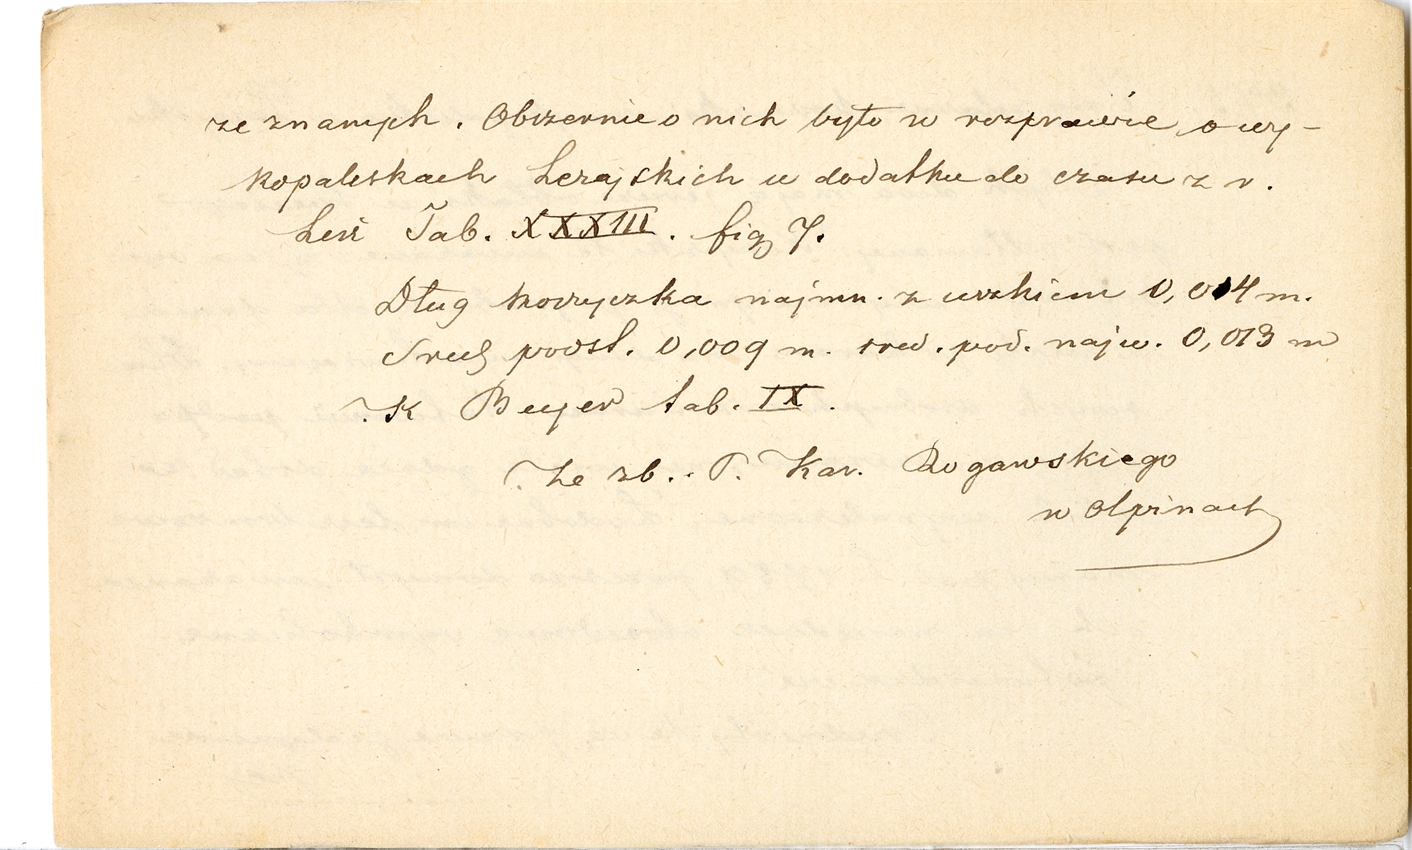 ze znanych. Obszernie o nich było w rozprawie o wy-
kopaliskach Leżajskich w dodatku do czasu z r.
Lesz Tab. XXXIII. fig 7.
Dług koszyczka najmn. z uszkiem 0,014 m.
Sred podst. 0,009 m. sred. pod. najw. 0,013 m
K Beyer tab. IX.
Ze zb. P. Kar. Rogawskiego
w Ołpinach